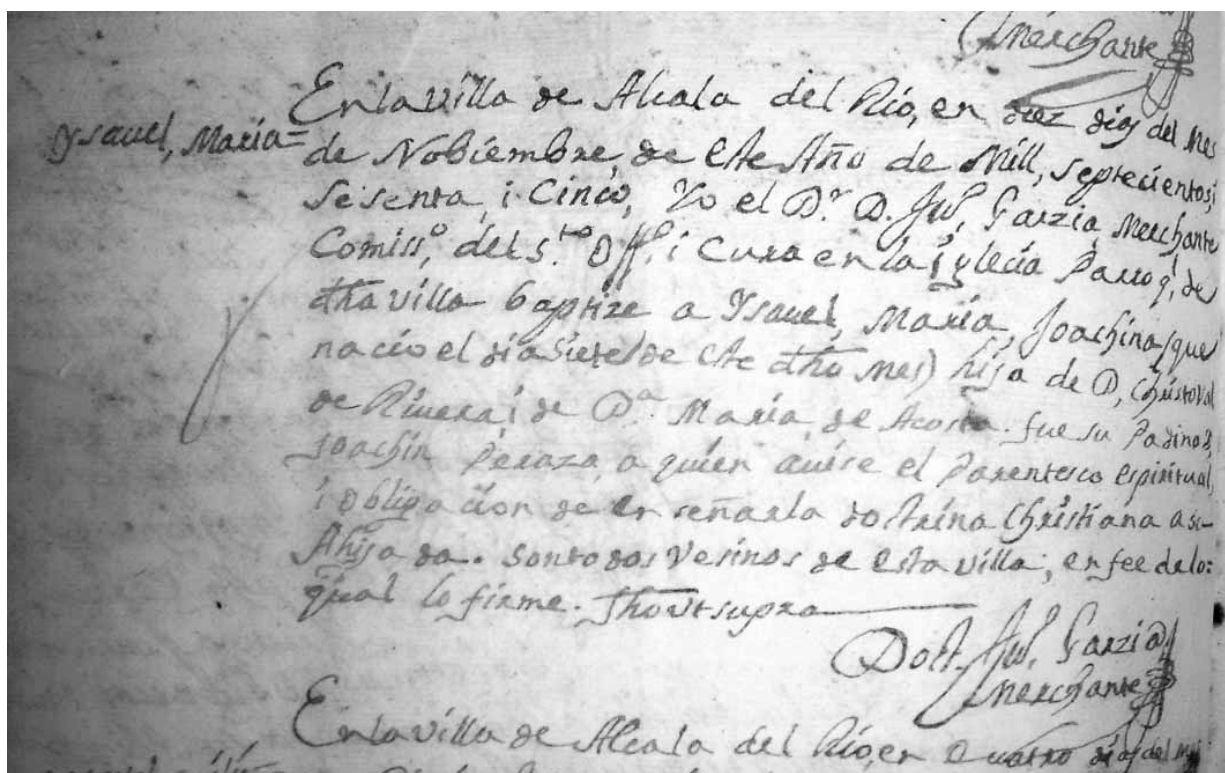 Merchante
Ysavel, Maria=
En la villa de Alcala del Rio, en diez dias del Mes
de Nobiembre, de este Año de Mill, septecientos, i
sesenta, i Cinco, Yo el D.r D. Garzia Merchante
Comiss,o del s.to Off. i Cura en la iglecia Parroq,l de
dha villa baptize a Ysavel, Maria, Joachina (que
nacio el dia siete de este dho mes) hija de D, Christoval
de Rivera, i de D.a Maria de Acosta. fue su Padino D,
Joachin Peraza a quien avise el Parentesco espiritual,
i obligacion de enseñarla doctrina Christiana a su
Ahijada. son todos Vesinos de esta villa; en fee de lo:
qual lo firme. fho ut supra
Doct. Garzia
Merchante
En la villa de Alcala del Rio, en Quatro dias del